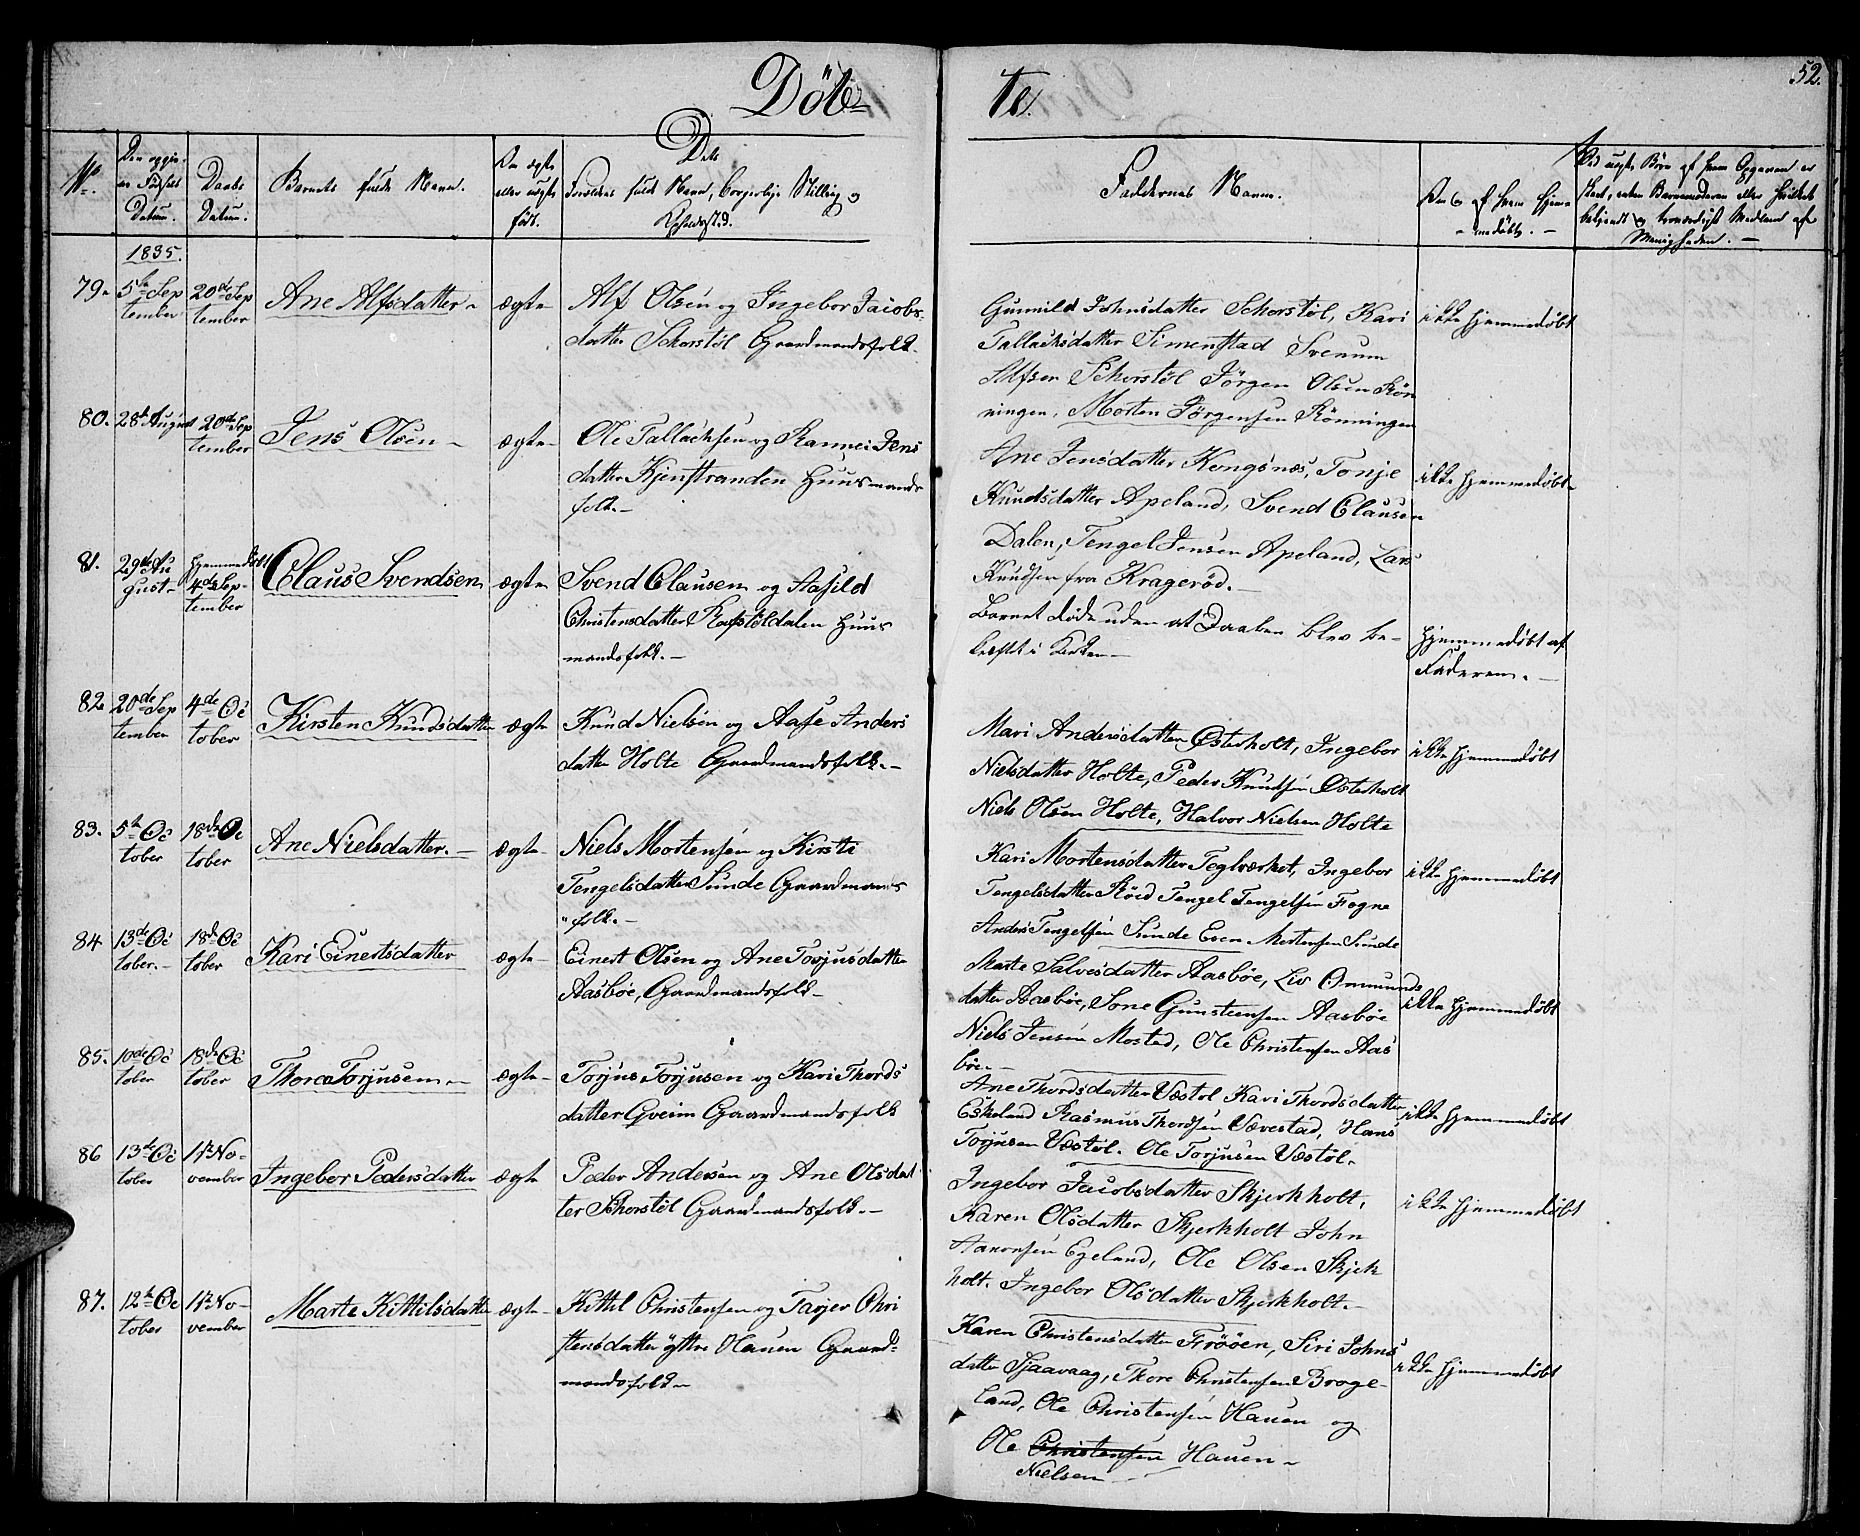 52.
Döbte.
No.
Den opgivne Fødsels Datum.
Daabs Datum.
Barnets fulde Navn.
Om ægte eller uægte født.
Dets Forældres fulde Navn, borgerlige Stilling og Opholdssted.
Faddernes Navne.
Om og af hvem hjemmedøbt.
Ved uægte Børn af hvem Opgaven er skeet, enten Barnemoderen eller hvilket bekjendt og troværdigt Medlem af Menigheden.
1835.
79. 5te September 20de September Ane Alfsdatter ægte
Alf Olsen og Ingebor Jacobs-
datter Schorstøl Gaardmandsfolk.
Gunnild Johnsdatter Schorstøl, Kari
Tallacksdatter Simenstad Svenum
Alfsen Schorstøl Jørgen Olsen Røn
ningen, Morten Jørgensen Rönningen
ikke hjemmedøbt
80. 28de August 20de September Jens Olsen ægte
Ole Tallacksen og Rannei Jens
datter Kjenstranden Huusmands
folk.
Ane Jensdatter Kongsnæs, Tonje
Knudsdatter Apeland, Svend Clausen
Dalen, Tengel Jensen Apeland, Lars
Knudsen fra Kragerød.
ikke hjemmedøbt
81. 29de August hjemmedøbt 4de September Claus Svendsen ægte
Svend Clausen og Aasild
Christensdatter Rafstöldalen Huus
mandsfolk.
Barnet døde uden at Daaben blev be-
kræftet i Kirken
hjemmedøbt af
Faderen.
82. 20de September 4de October Kirsten Knudsdatter ægte
Knud Nielsen og Aase Anders
datter Holte Gaardmandsfolk.
Mari Andersdatter Østerholt, Ingebor
Nielsdatter Holte, Peder Knudsen Østerholt
Niels Olsen Holte, Halvor Nielsen Holte
ikke hjemmedøbt
83. 5te October 18de October Ane Nielsdatter. ægte
Niels Mortensen og Kirsti
Tengelsdatter Sunde Gaardmands
folk.
Kari Mortensdatter Teglværket, Ingebor
Tengelsdatter Röed Tengel Tengelsen Fogne
Anders Tengelsen Sunde Even Mortensen Sunde
ikke hjemmedøbt
84 13de October. 18de October Kari Einertsdatter ægte
Einert Olsen og Ane Torjusdatter
Aasbøe, Gaardmandsfolk
Marte Salvesdatter Aasbøe, Liv Ommunds
datter Aasbøe, Sone Gunsteensen Aasbøe
Niels Jensen Mostad, Ole Christensen Aas
bøe.
ikke hjemmedøbt
85. 10de October 18de October Thore Torjusen ægte
Torjus Torjusen og Kari Thords
datter Gveim Gaardmandsfolk
Ane Thordsdatter Væstøl Kari Thordsdatter
Eskeland Rasmus Thordsen Vævestad, Hans
Torjusen Væstöl. Ole Torjusen Væstøl.
ikke hjemmedøbt
86 13de October 1te November Ingebor Pedersdatter ægte
Peder Andersen og Ane Olsdat
ter Schorstøl Gaardmandsfolk.
Ingebor Jacobsdatter Skjerkholt,
Karen Olsdatter Skjerkholt John
Aanonsen Egeland, Ole Olsen Skjerk
holt. Ingebor Olsdatter Skjerkholt.
ikke hjemmedøbt
87. 12te October 1te November Marte Kittilsdatter ægte
Kittil Christensen og Tarjer Chri
stensdatter yttre Hauen Gaard-
mandsfolk
Karen Christensdatter Frøöen, Siri Johns
datter Sjaavaag, Thore Christensen Broge-
land, Ole Christensen Hauen og
Ole Christensen Hauen
Nielsen
ikke hjemmedøbt